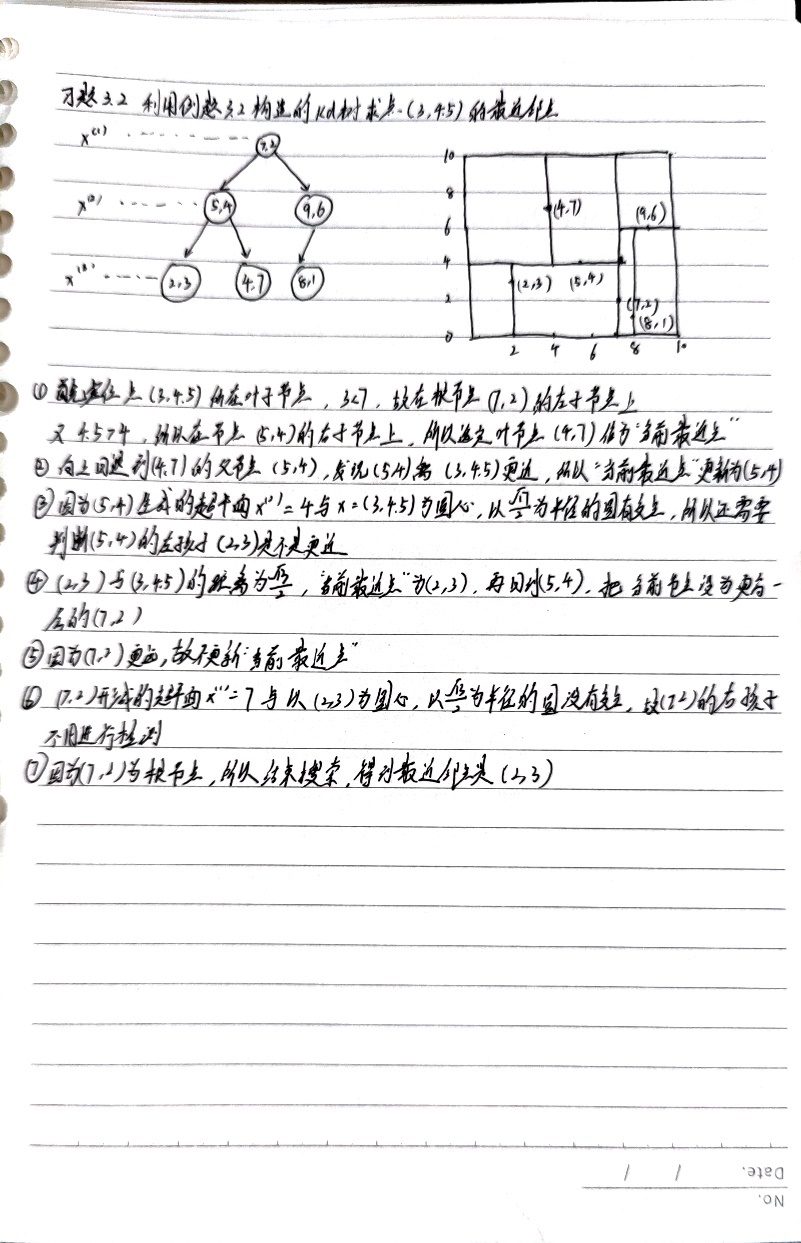 习题3.2 利用例题3.2构造的kd树求点(3,4.5)的最近邻点
x⁽¹⁾ 7,2
x⁽²⁾ 5,4 9,6
x⁽¹⁾ 2,3 4,7 8,1
10
8
6
4
2
0
2 4 6 8 10
(4,7) (9,6)
(2,3) (5,4)
(7,2)
(8,1)
① 首先定位点(3,4.5)所在叶子节点，3<7，故在根节点(7,2)的左子节点上
又4.5>4，所以在节点(5,4)的右子节点上，所以选定叶节点(4,7)作为"当前最近点"
② 向上回退到(4,7)的父节点(5,4)，发现(5,4)离(3,4.5)更近，所以"当前最近点"更新为(5,4)
③ 因为(5,4)生成的超平面x⁽²⁾=4与x=(3,4.5)为圆心，以√17/2为半径的圆有交点，所以还需要
判断(5,4)的左孩子(2,3)是不是更近
④ (2,3)与(3,4.5)的距离为√13/2，"当前最近点"为(2,3)，再回到(5,4)，把当前节点设为更高一
层的(7,2)
⑤ 因为(7,2)更远，故不更新"当前最近点"
⑥ (7,2)形成的超平面x⁽¹⁾=7与以(2,3)为圆心，以√13/2为半径的圆没有交点，故(7,2)的右孩子
不用进行检测
⑦ 因为(7,2)为根节点，所以结束搜索，得到最近邻点是(2,3)
Date. / /
No.